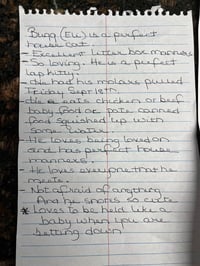 Bung (Eli) is a perfect
house cat.
- Excellent litter box manners
- So loving. He is a perfect
lap kitty.
- He had his molars pulled
Friday Sept 18th.
- He eats chicken or beef
baby food or pate canned
food squished up with
some water.
- He loves being loved on
and has perfect house
manners.
- He loves everyone that he
meets.
- Not afraid of anything
And he snores so cute
* Loves to be held like a
baby when you are
setting down